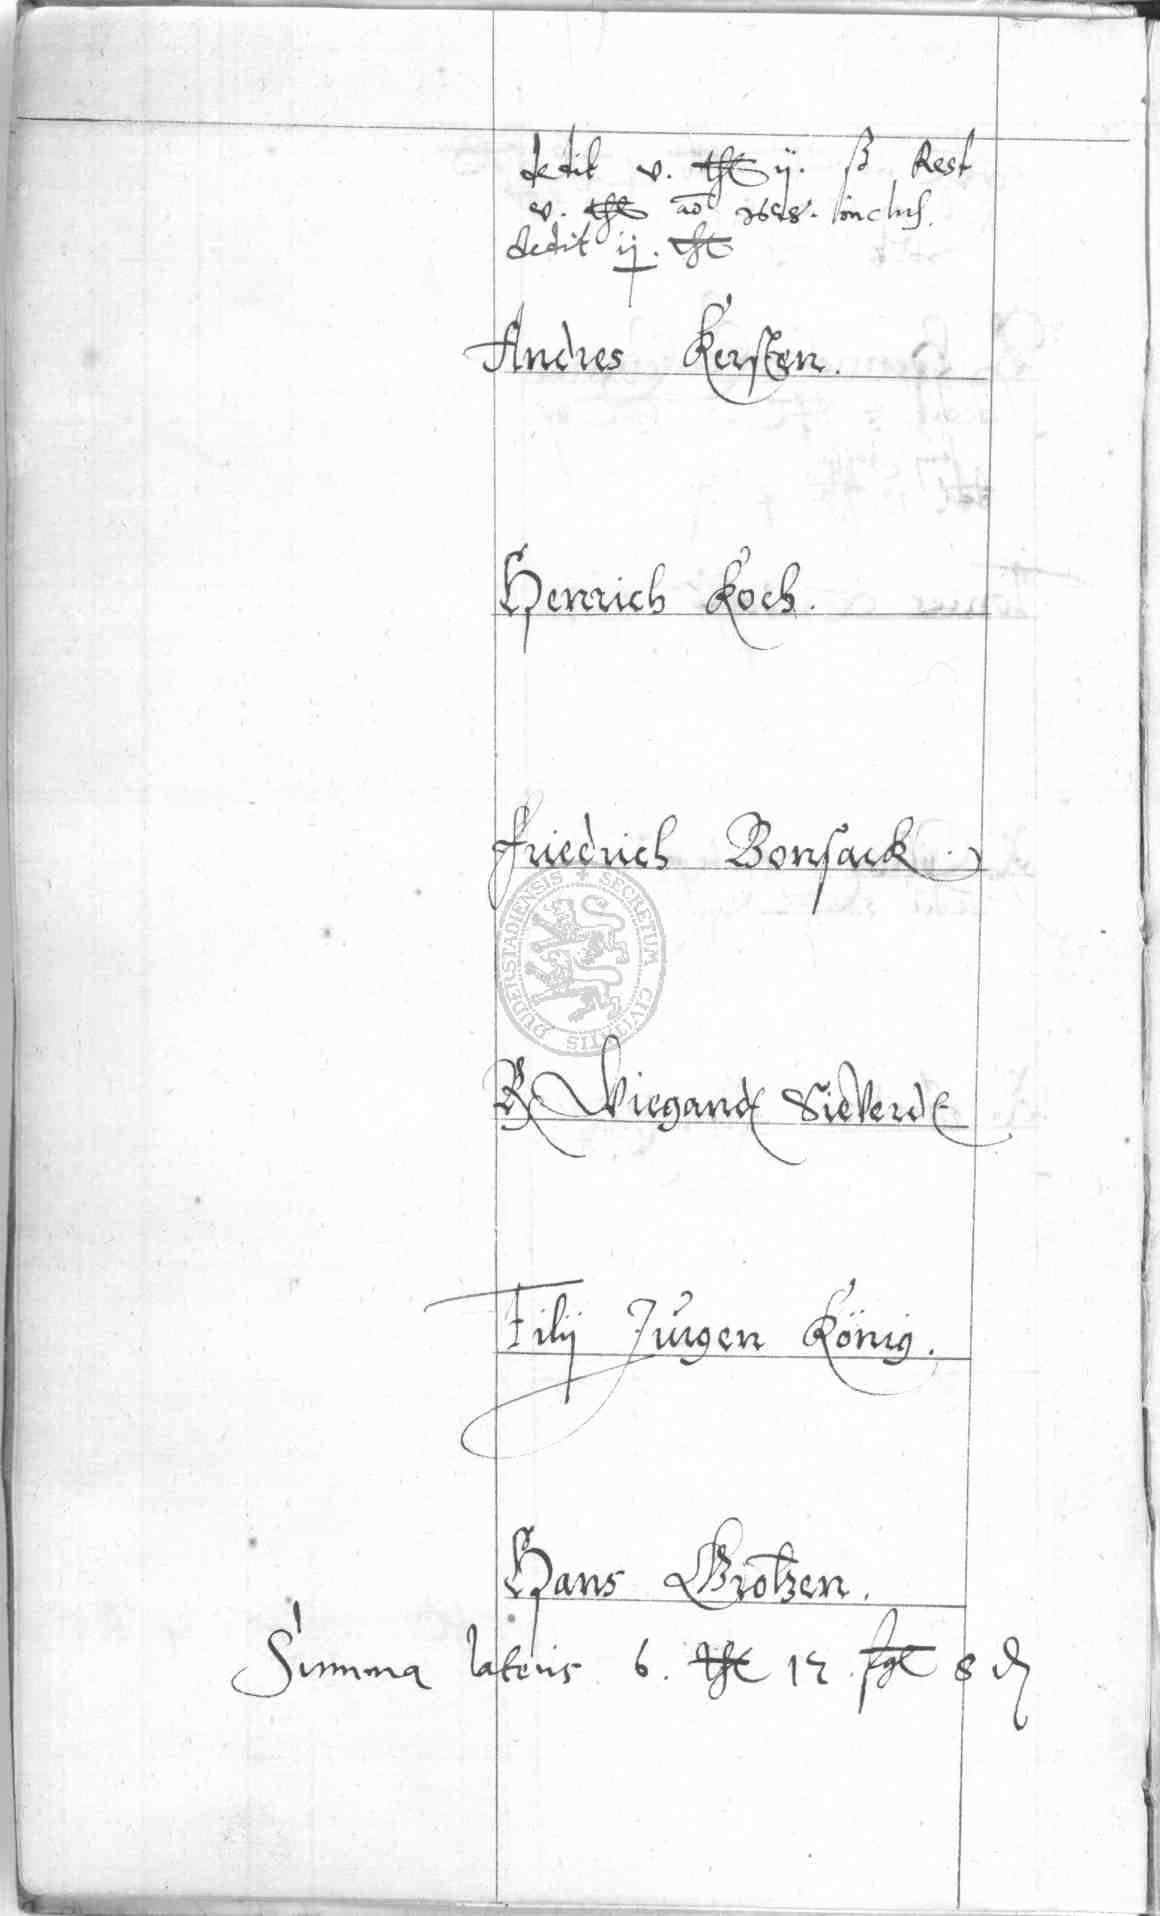 dedit v. thl ij. ß Rest
v. thl ao inclus.
dedit ij. thl
Andres Kersten.
Henrich Koch.
Friedrich Bonsack.
SECRETUM CIVITATIS DUDERSTADIENSIS
Wiegandt Sieverdt
Filij Jurgen König.
Hans Grotzen.
Summa lateris 6. thl 17. sgl 8 d